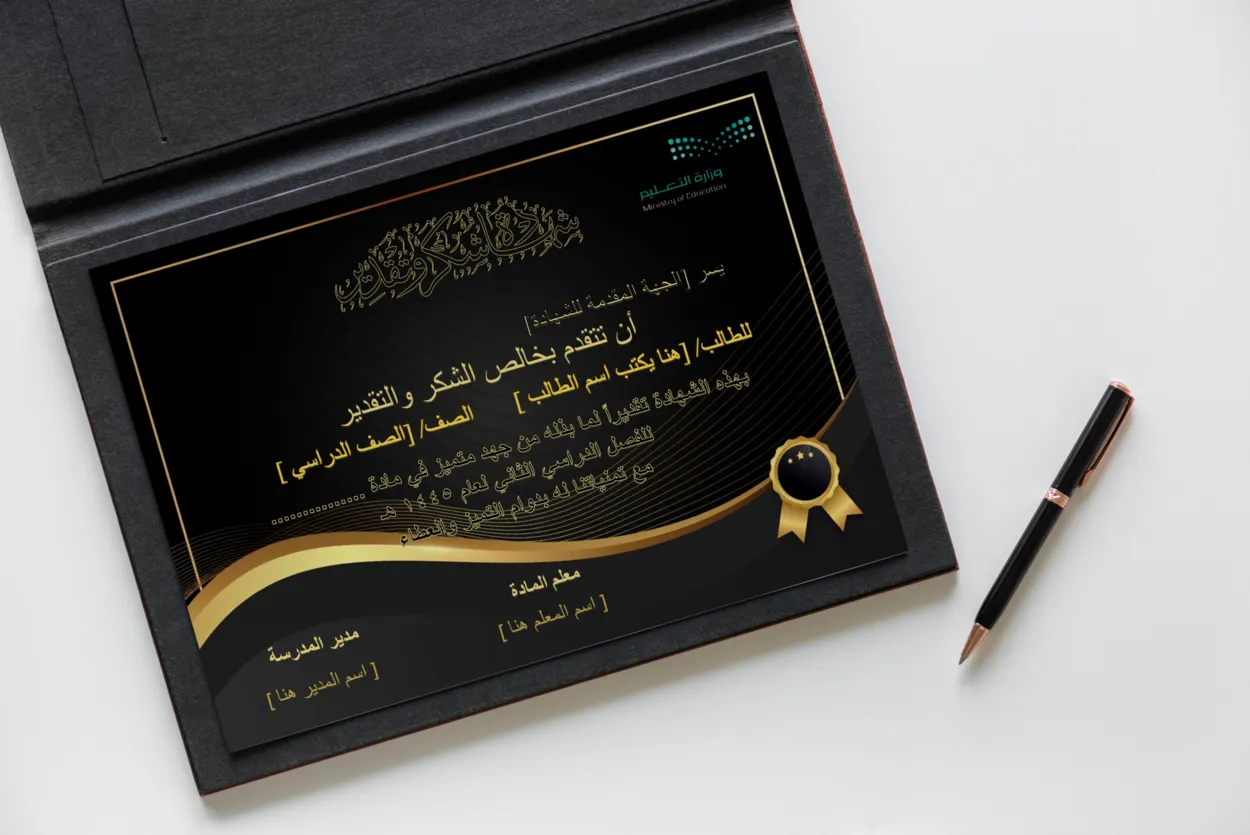 وزارة التعليم
Ministry of Education
شهادة شكر وتقدير
يسر [الجهة المقدمة للشهادة]
أن تتقدم بخالص الشكر والتقدير
للطالب/ [هنا يكتب اسم الطالب ] الصف/ [الصف الدراسي ]
بهذه الشهادة تقديراً لما بذله من جهد متميز في مادة ................
للفصل الدراسي الثاني لعام ١٤٤٥ هـ
مع تمنياتنا له بدوام التميز والعطاء
معلم المادة
[ اسم المعلم هنا ]
مدير المدرسة
[ اسم المدير هنا ]